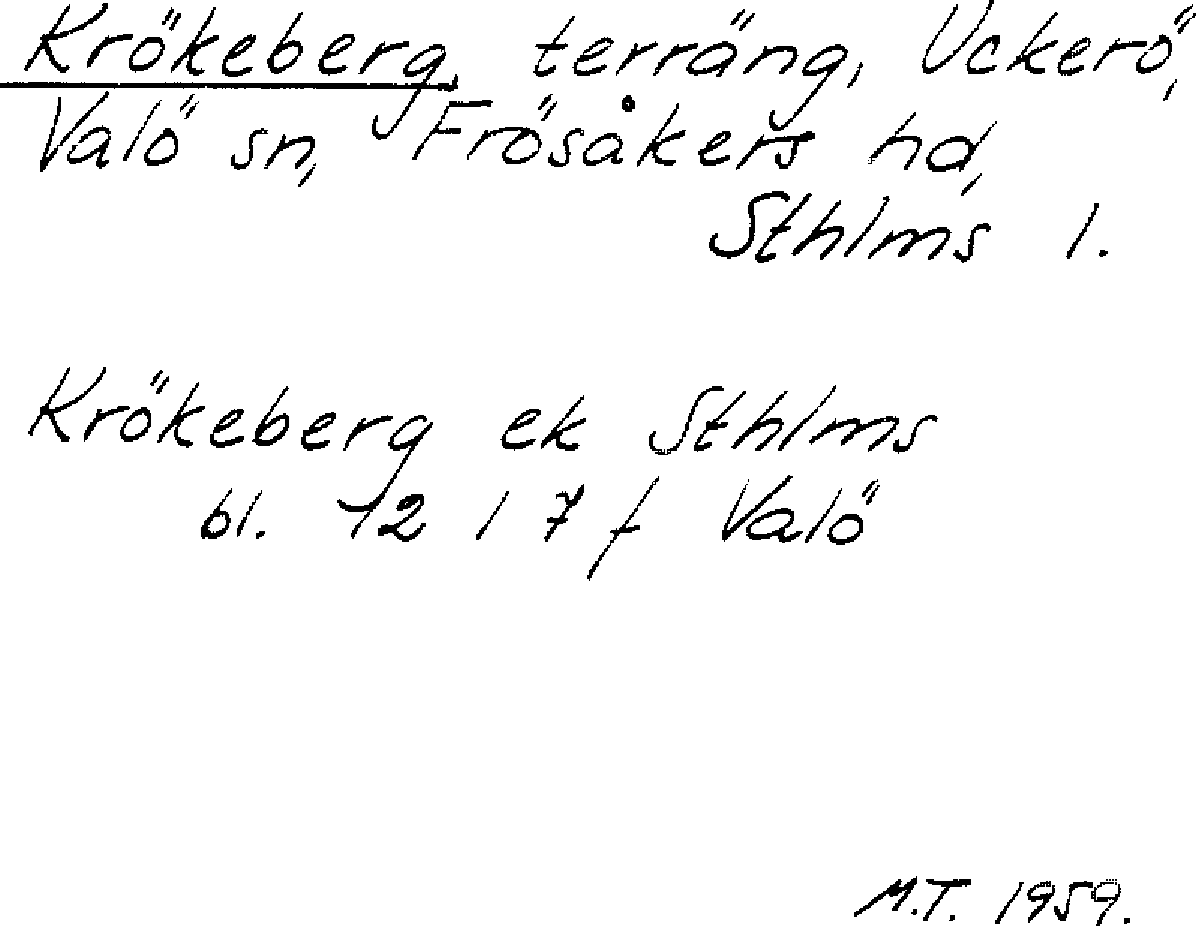 Krökeberg, terräng, Uckerö,
Valö sn, Frösåkers hd,
Sthlms l.
Krökeberg ek Sthlms
bl. 12 I 7 f Valö
M.T. 1959.